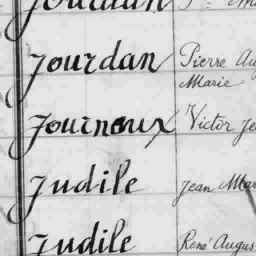 Jourdan
Jourdan Pierre Au
Marie
Journoux Victor Je
Judile Jean Mar
Judile René Augus